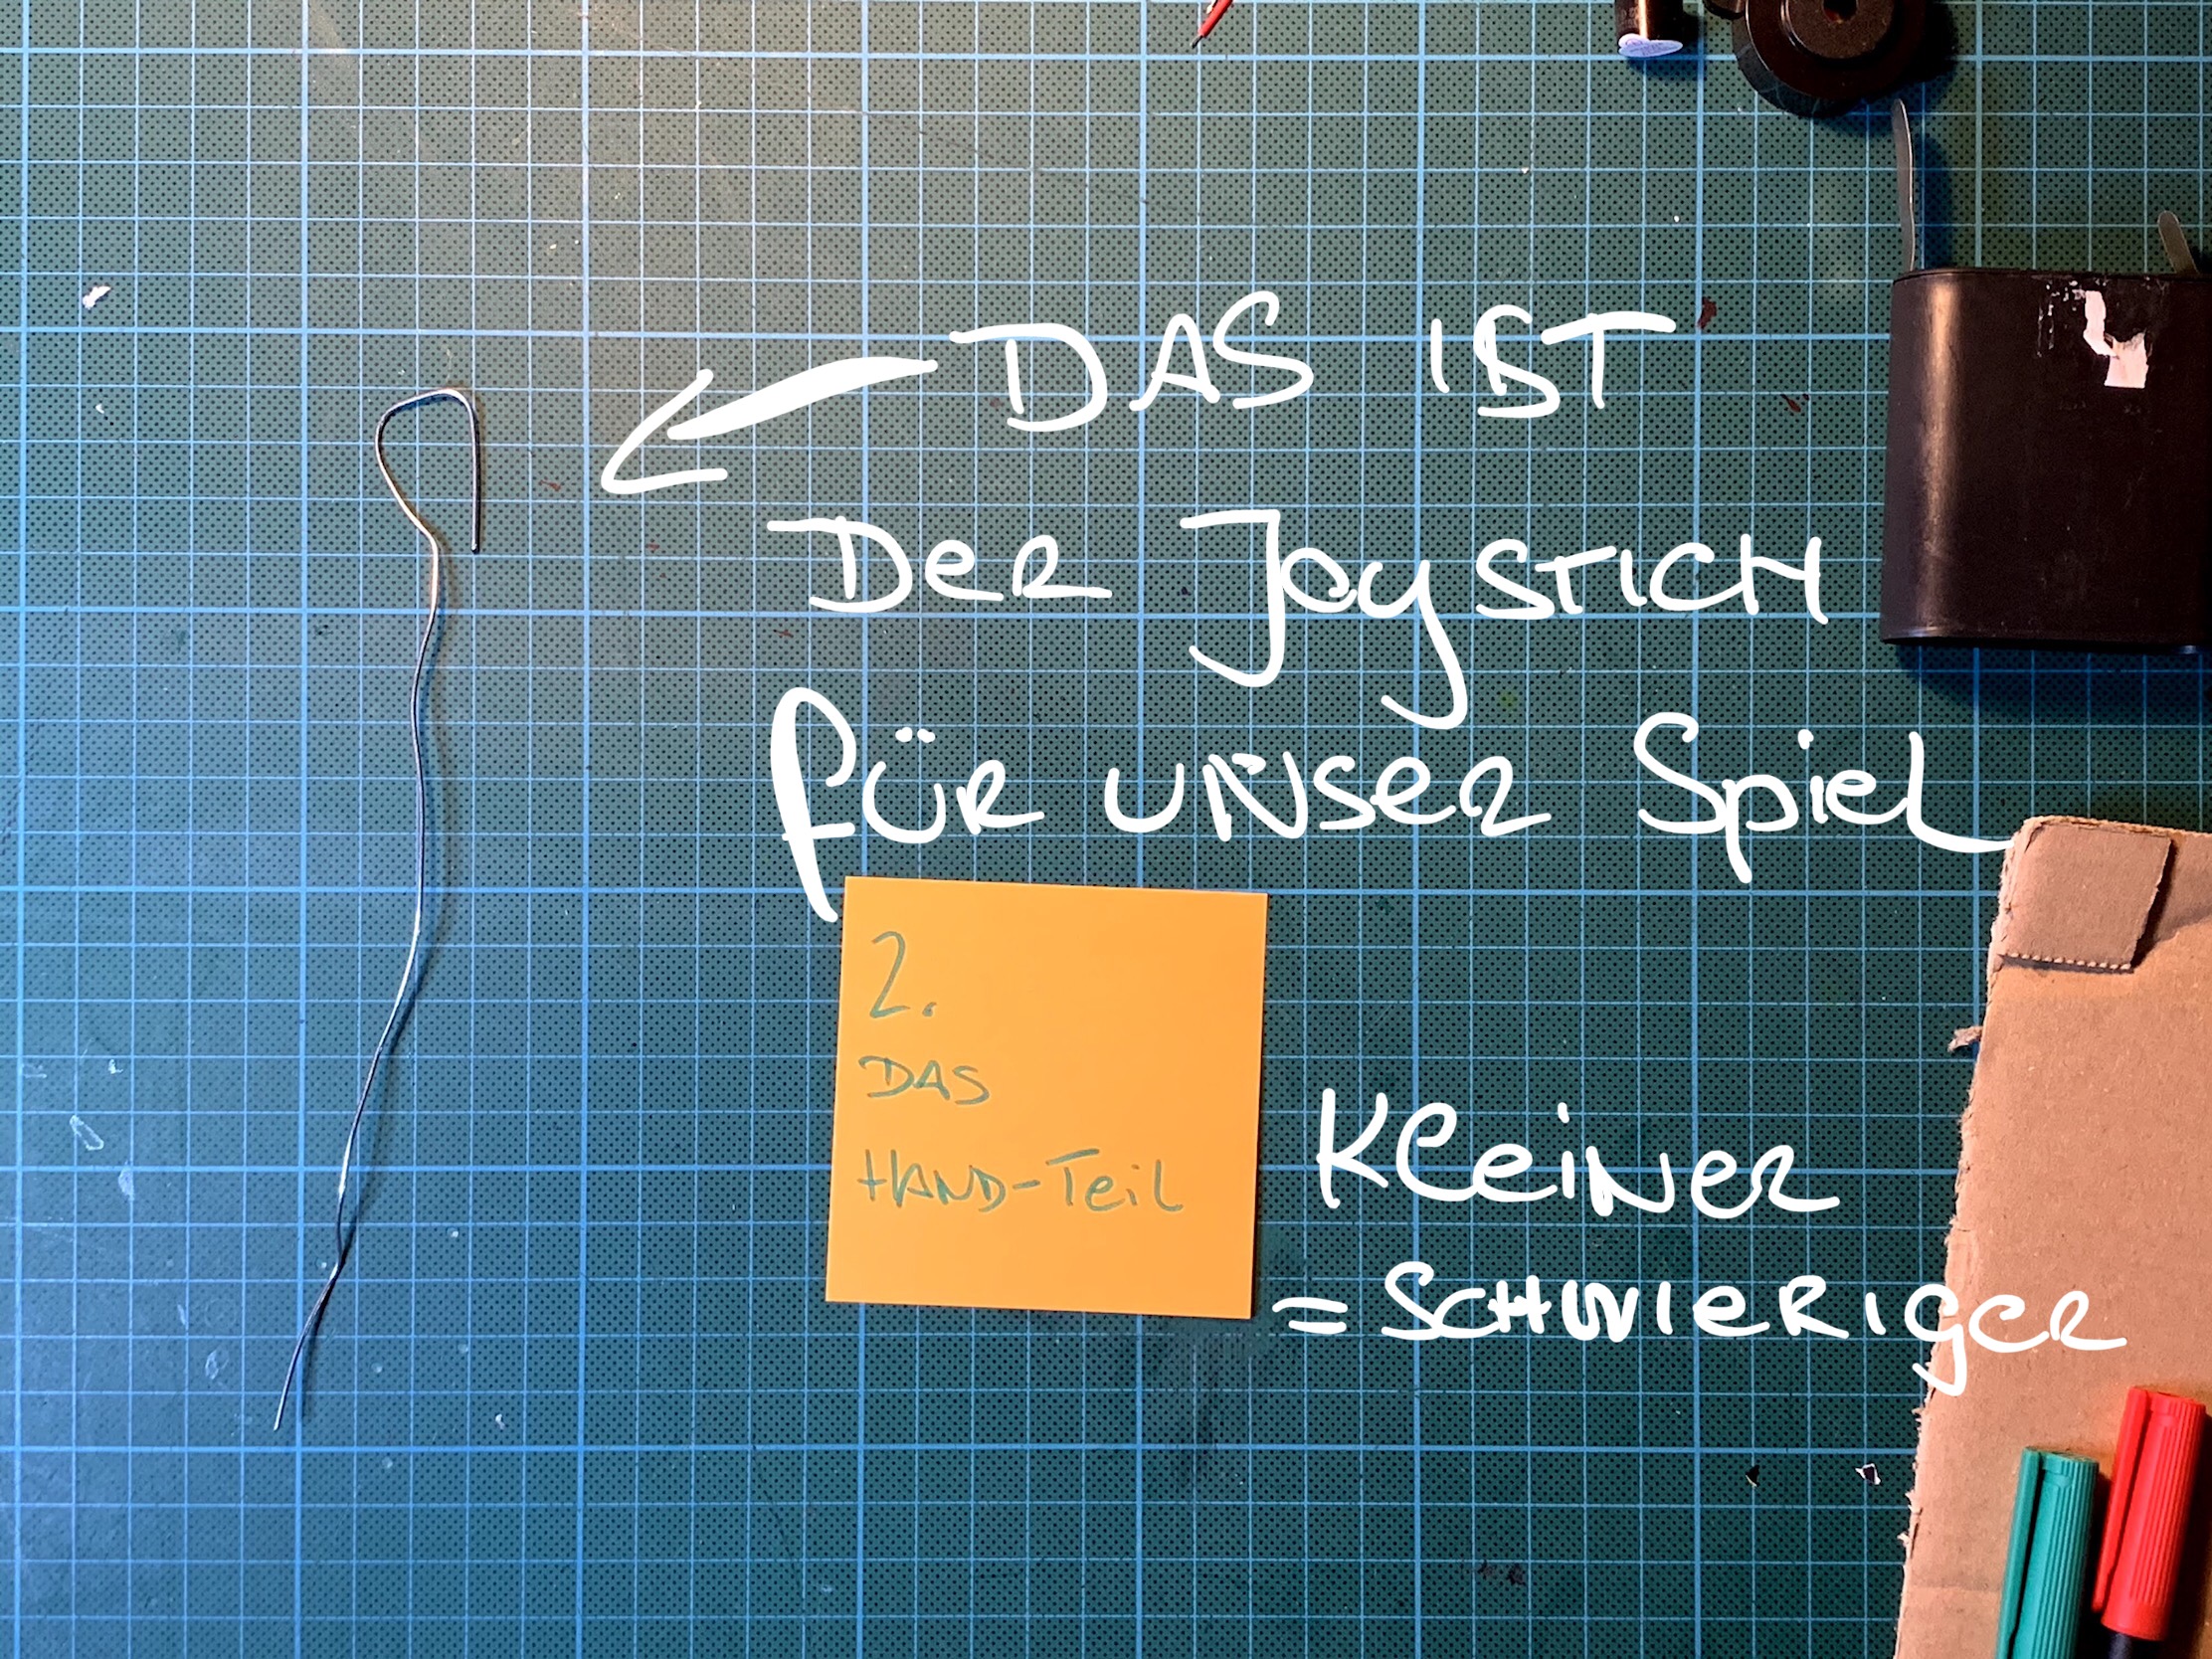 DAS IST
Der Joystick
für unser Spiel
2.
DAS
HAND-Teil
Kleiner
= SCHWIERIGER